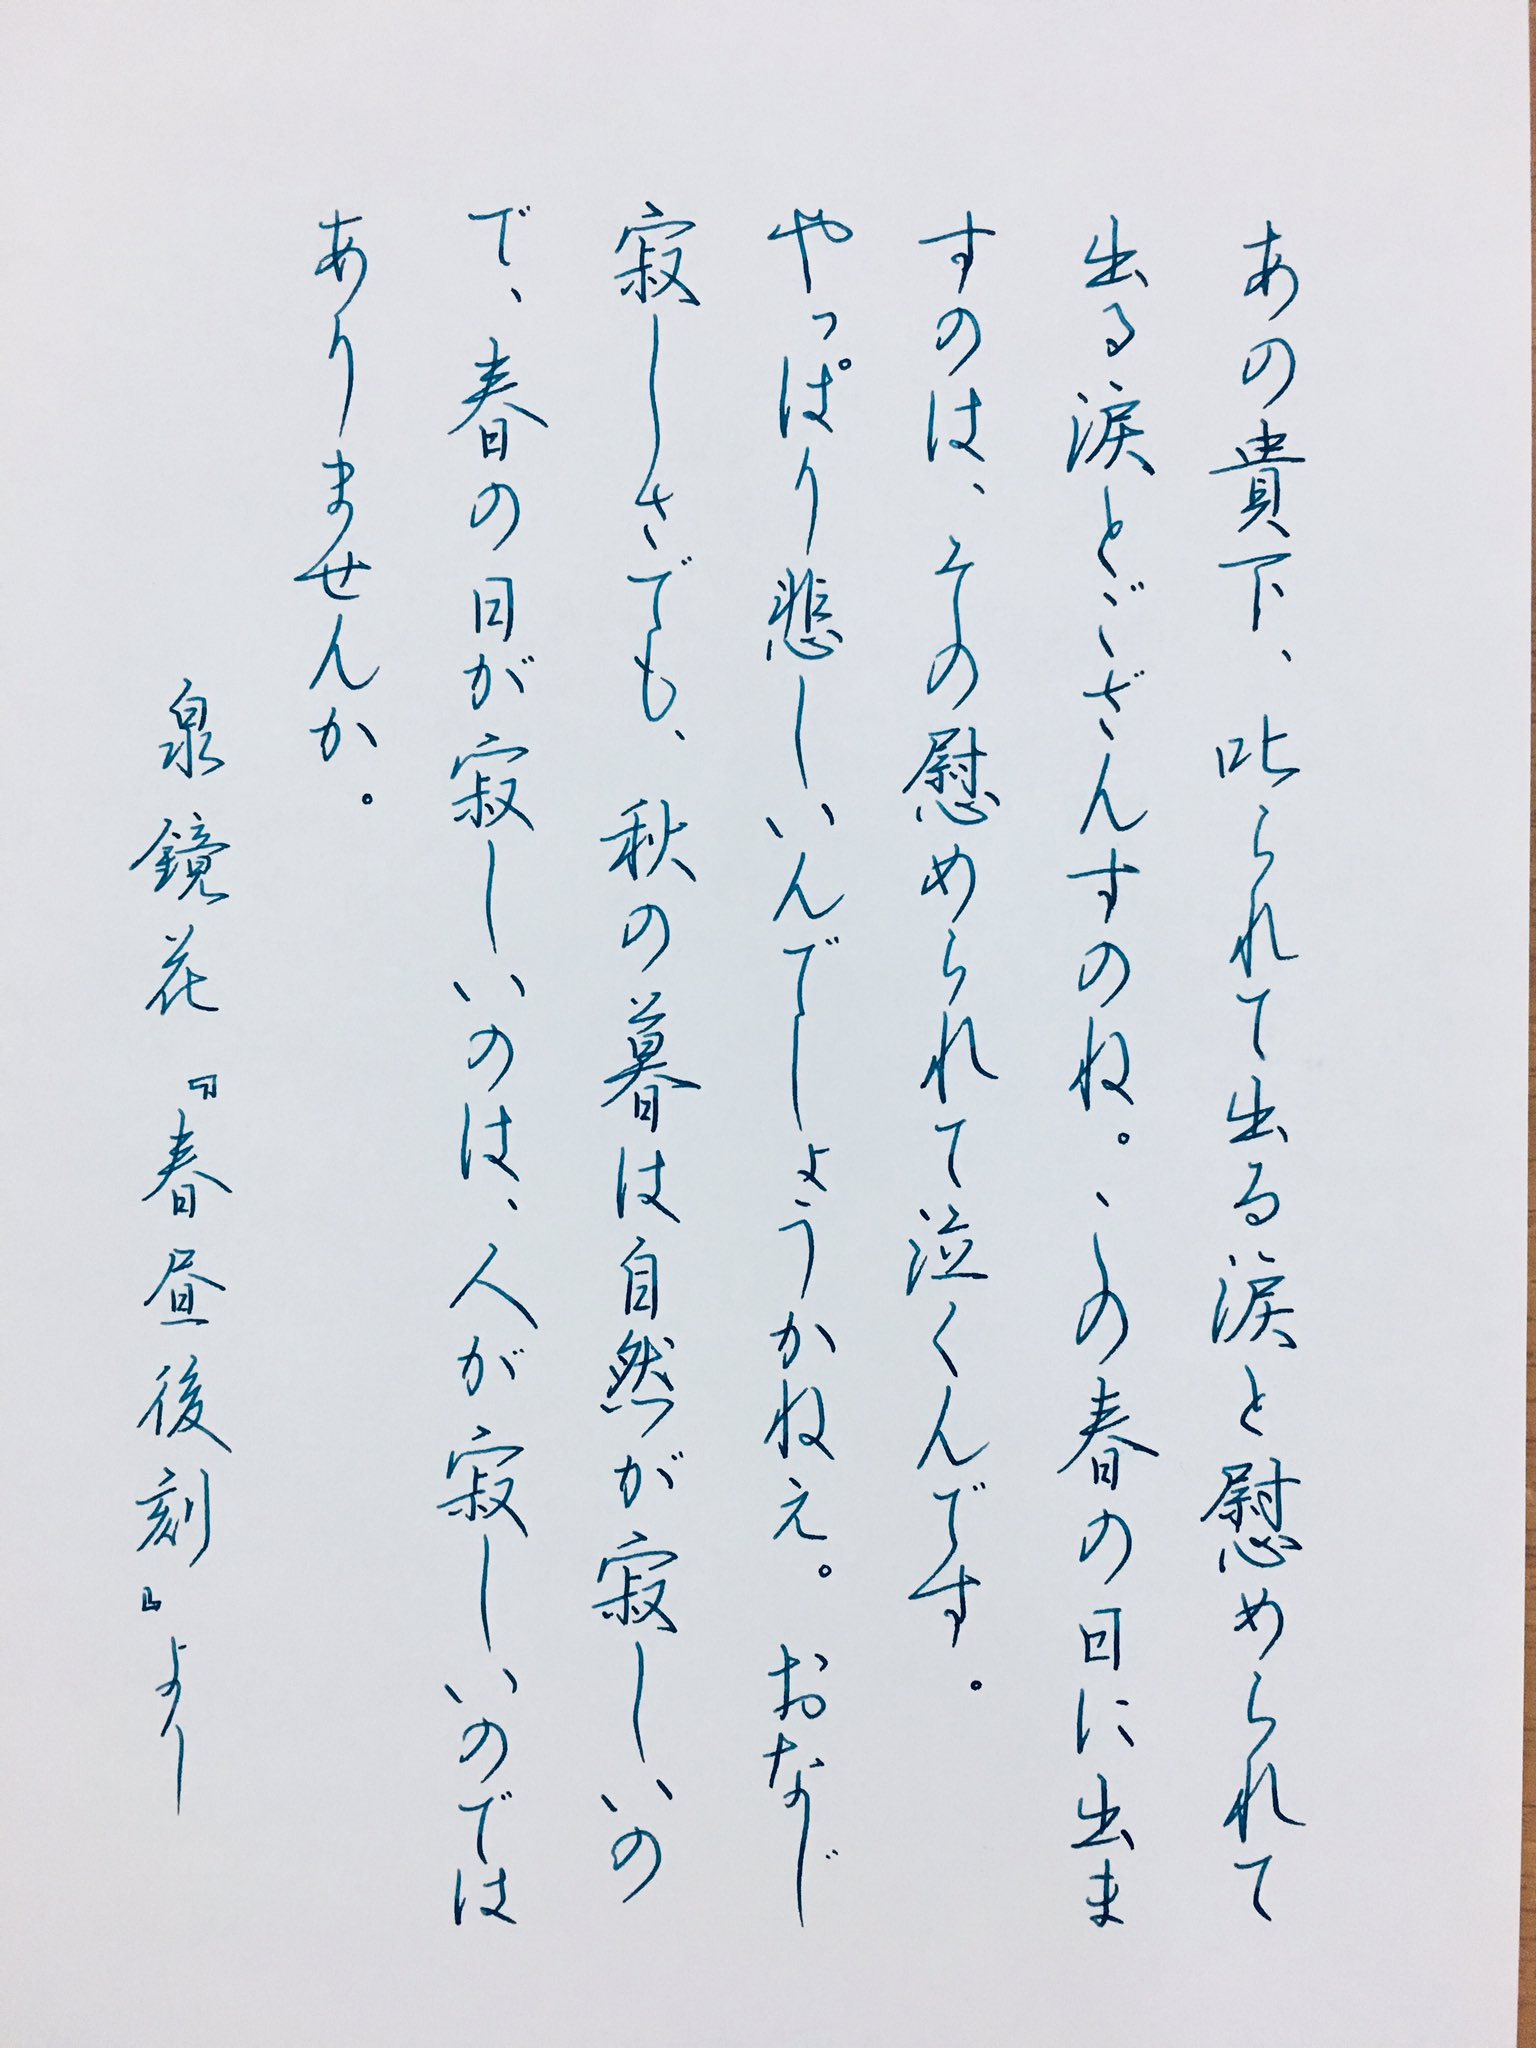 あの貴下、叱られて出る涙と慰められて
出る涙とござんすのね。この春の日に出ま
すのは、その慰められて泣くんです。
やっぱり悲しいんでしょうかねえ。おなじ
寂しさでも、秋の暮は自然が寂しいの
で、春の日が寂しいのは、人が寂しいのでは
ありませんか。
泉鏡花『春昼後刻』より